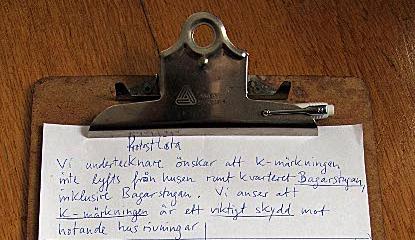 Protest lista
Vi undertecknare önskar att K-märkningen
inte lyfts från husen runt kvarteret Bagarstugan,
inklusive Bagarstugan. Vi anser att
K-märkningen är ett viktigt skydd mot
hotande husrivningar